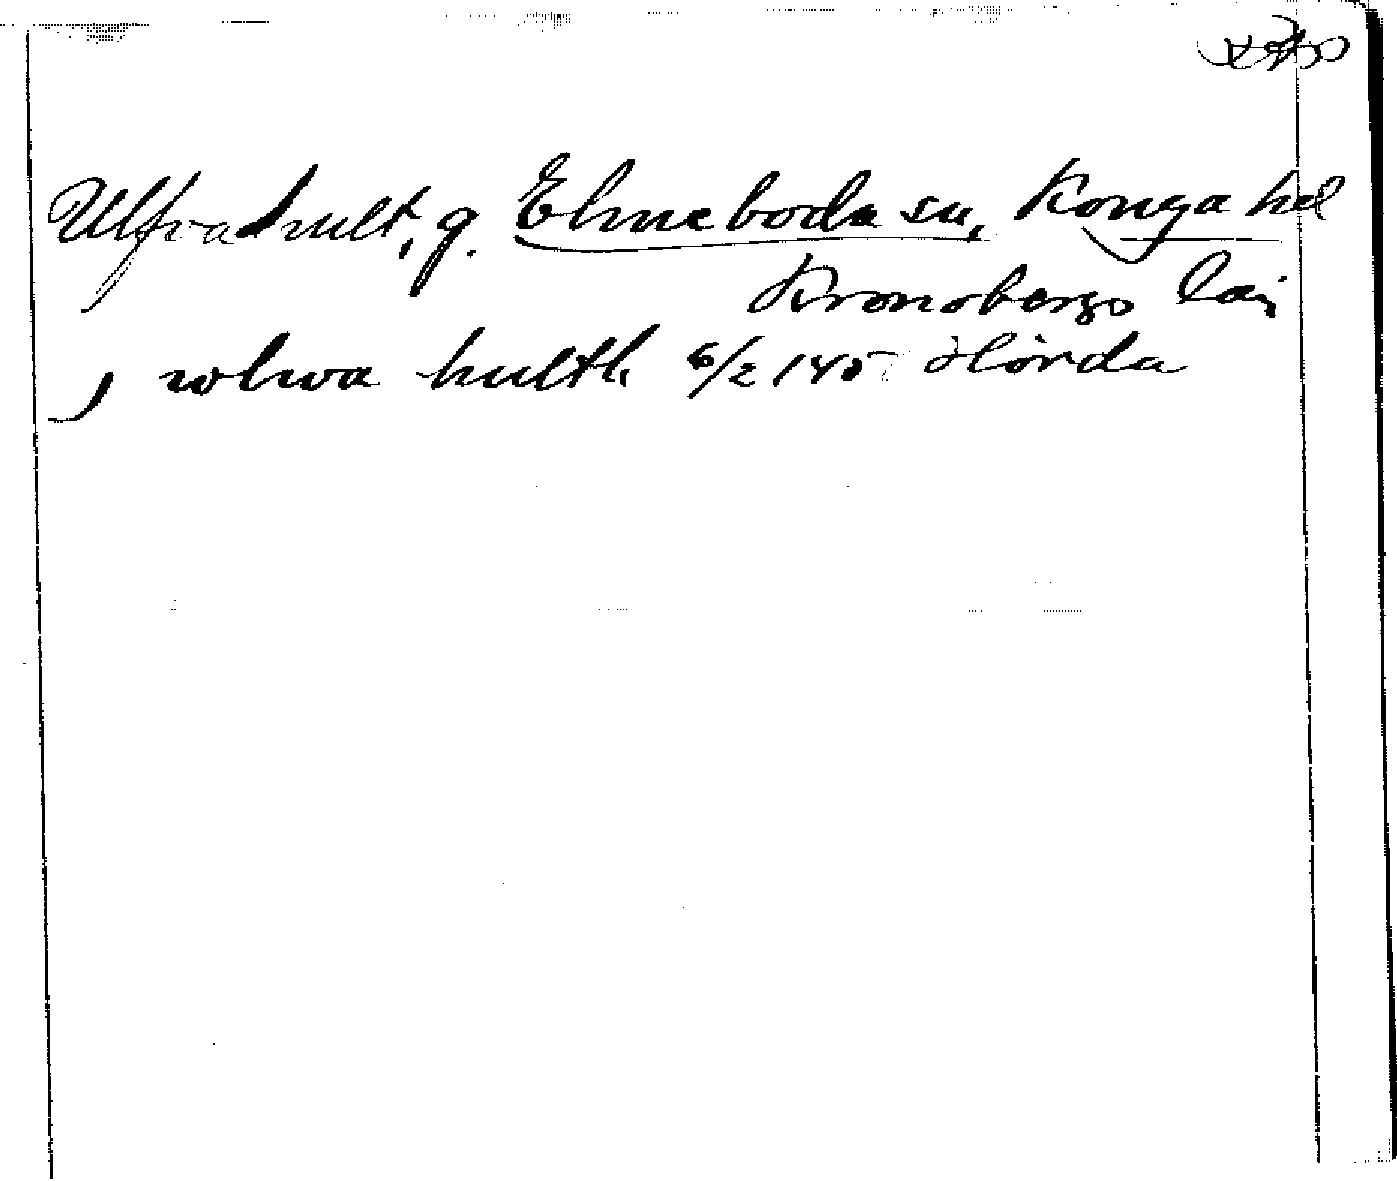 Ulfvahult, g. Elmeboda sn, Konga hd
Kronobergs län
) wlwa hulth 6/2 145 Hörda